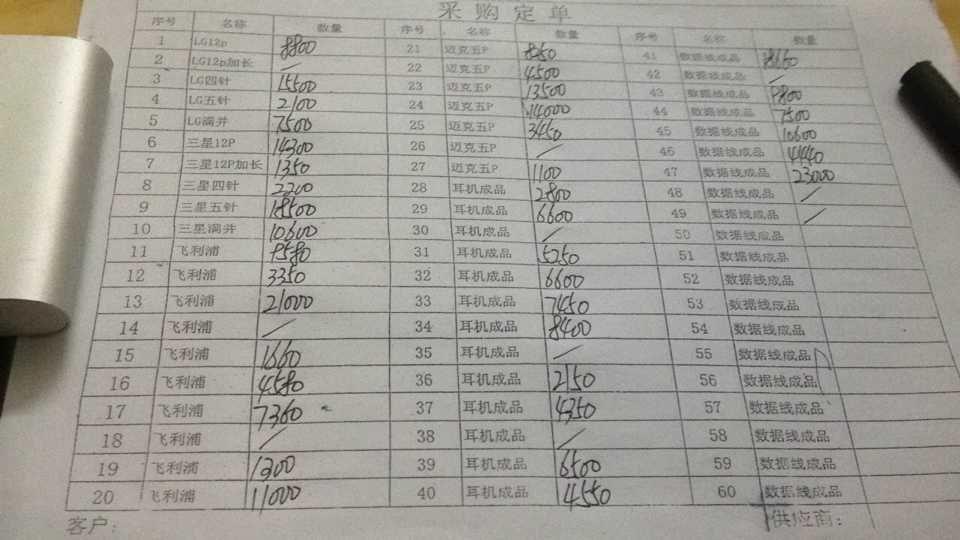 采购定单
序号 名称 数量 序号 名称 数量 序号 名称 数量
1 LG12p 8800 21 迈克五P 8250 41 数据线成品
2 LG12p加长 / 22 迈克五P 4500 42 数据线成品 /
3 LG四针 15500 23 迈克五P 13500 43 数据线成品 9800
4 LG五针 2100 24 迈克五P 14000 44 数据线成品 1500
5 LG滴并 7500 25 迈克五P 3450 45 数据线成品 10600
6 三星12P 14300 26 迈克五P / 46 数据线成品 4440
7 三星12P加长 1350 27 迈克五P 1100 47 数据线成品 23000
8 三星四针 2200 28 耳机成品 2800 48 数据线成品 /
9 三星五针 18500 29 耳机成品 6600 49 数据线成品 /
10 三星滴并 10600 30 耳机成品 / 50 数据线成品
11 飞利浦 9580 31 耳机成品 5250 51 数据线成品
12 飞利浦 3350 32 耳机成品 6600 52 数据线成品
13 飞利浦 21000 33 耳机成品 7450 53 数据线成品
14 飞利浦 / 34 耳机成品 8400 54 数据线成品
15 飞利浦 1660 35 耳机成品 / 55 数据线成品
16 飞利浦 4580 36 耳机成品 2150 56 数据线成品
17 飞利浦 7360 37 耳机成品 4350 57 数据线成品
18 飞利浦 / 38 耳机成品 / 58 数据线成品
19 飞利浦 1200 39 耳机成品 6500 59 数据线成品
20 飞利浦 11000 40 耳机成品 4550 60 数据线成品
客户: 供应商: